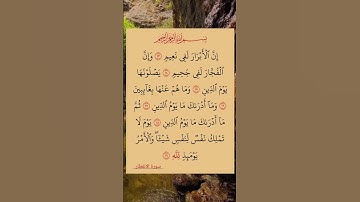 بسم الله الرحمن الرحيم
إِنَّ ٱلْأَبْرَارَ لَفِى نَعِيمٍ ۝ وَإِنَّ
ٱلْفُجَّارَ لَفِى جَحِيمٍ ۝ يَصْلَوْنَهَا
يَوْمَ ٱلدِّينِ ۝ وَمَا هُمْ عَنْهَا بِغَآئِبِينَ
۝ وَمَآ أَدْرَىٰكَ مَا يَوْمُ ٱلدِّينِ ۝ ثُمَّ
مَآ أَدْرَىٰكَ مَا يَوْمُ ٱلدِّينِ ۝ يَوْمَ لَا
تَمْلِكُ نَفْسٌ لِّنَفْسٍ شَيْـًٔا ۖ وَٱلْأَمْرُ
يَوْمَئِذٍ لِّلَّهِ ۝
سورة الانفطار